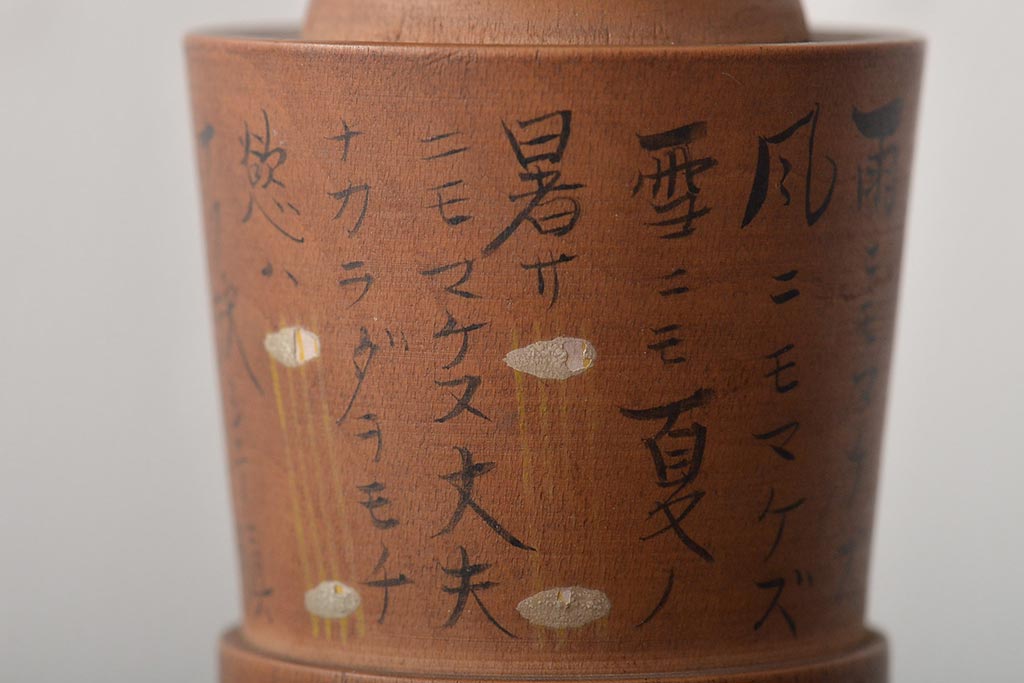 雨ニモマケズ
風ニモマケズ
雪ニモ夏ノ
暑サ
ニモマケヌ丈夫
ナカラダヲモチ
慾ハ